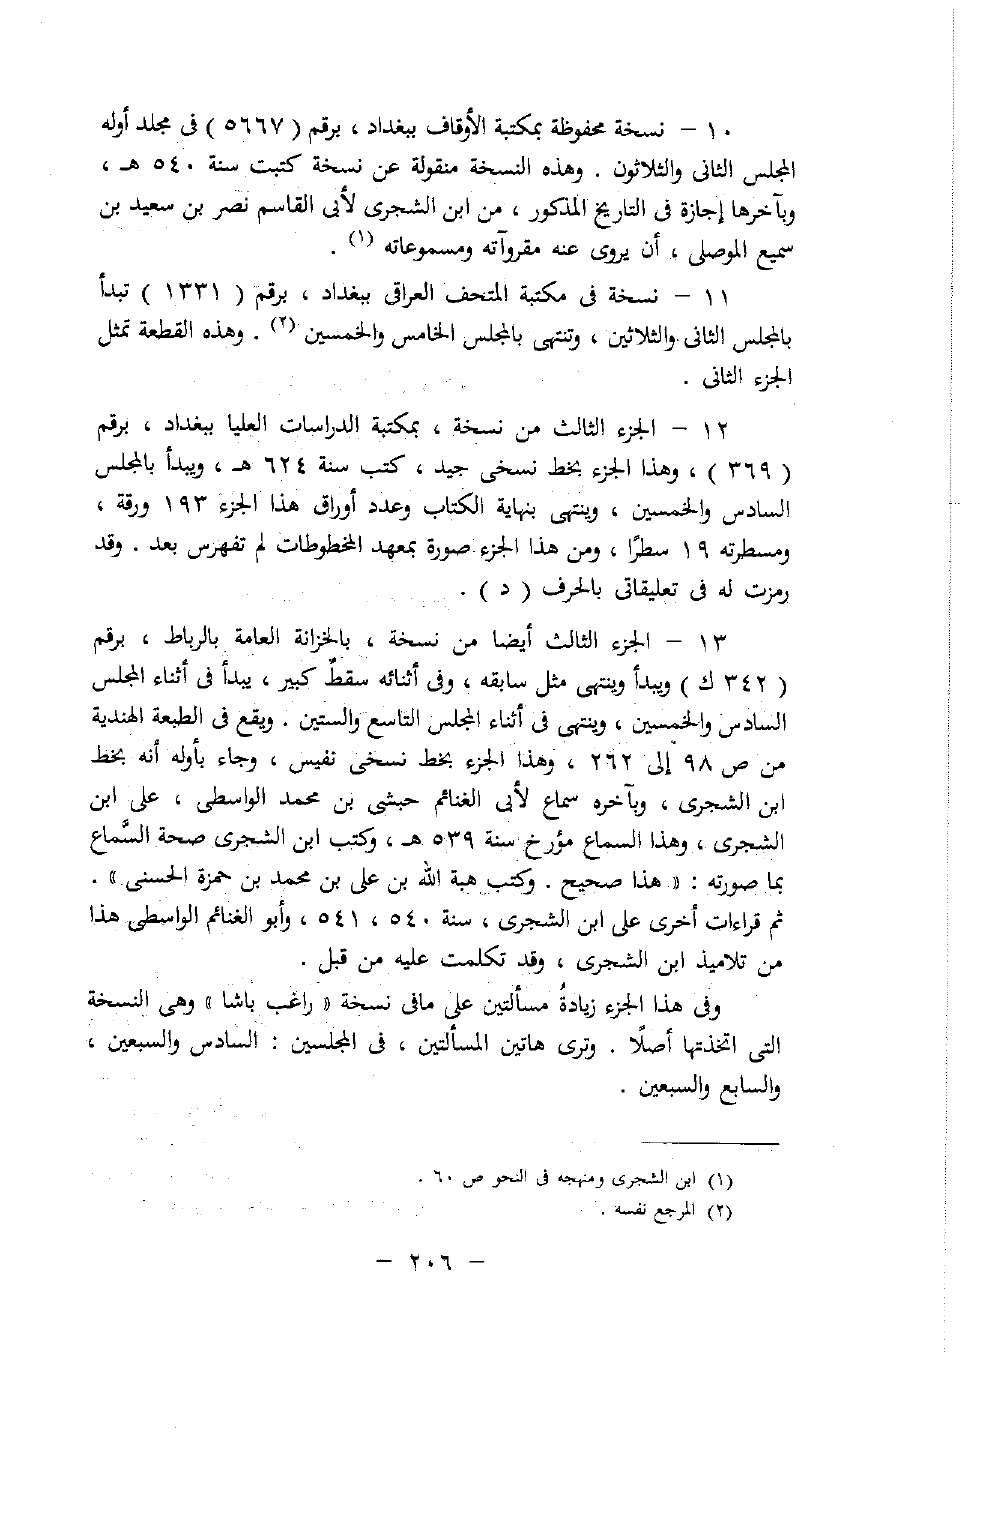 ١٠ – نسخة محفوظة بمكتبة الأوقاف ببغداد ، برقم ( ٥٦٦٧ ) فى مجلد أوله
المجلس الثانى والثلاثون . وهذه النسخة منقولة عن نسخة كتبت سنة ٥٤٠ هـ ،
وبآخرها إجازة فى التاريخ المذكور ، من ابن الشجرى لأبى القاسم نصر بن سعيد بن
سميع الموصلى ، أن يروى عنه مقروآته ومسموعاته (١) .
١١ – نسخة فى مكتبة المتحف العراقى ببغداد ، برقم ( ١٣٣١ ) تبدأ
بالمجلس الثانى والثلاثين ، وتنتهى بالمجلس الخامس والخمسين (٢) . وهذه القطعة تمثل
الجزء الثانى .
١٢ – الجزء الثالث من نسخة ، بمكتبة الدراسات العليا ببغداد ، برقم
( ٣٦٩ ) ، وهذا الجزء بخط نسخى جيد ، كتب سنة ٦٢٤ هـ ، ويبدأ بالمجلس
السادس والخمسين ، وينتهى بنهاية الكتاب وعدد أوراق هذا الجزء ١٩٣ ورقة ،
ومسطرته ١٩ سطرًا ، ومن هذا الجزء صورة بمعهد المخطوطات لم تفهرس بعد . وقد
رمزت له فى تعليقاتى بالحرف ( د ) .
١٣ – الجزء الثالث أيضا من نسخة ، بالخزانة العامة بالرباط ، برقم
( ٣٤٢ ك ) ويبدأ وينتهى مثل سابقه ، وفى أثنائه سقطٌ كبير ، يبدأ فى أثناء المجلس
السادس والخمسين ، وينتهى فى أثناء المجلس التاسع والستين . ويقع فى الطبعة الهندية
من ص ٩٨ إلى ٢٦٢ ، وهذا الجزء بخط نسخى نفيس ، وجاء بأوله أنه بخط
ابن الشجرى ، وبآخره سماع لأبى الغنائم حبشى بن محمد الواسطى ، على ابن
الشجرى ، وهذا السماع مؤرخ سنة ٥٣٩ هـ ، وكتب ابن الشجرى صحة السَّماع
بما صورته : « هذا صحيح . وكتب هبة الله بن على بن محمد بن حمزة الحسنى » .
ثم قراءات أخرى على ابن الشجرى ، سنة ٥٤٠ ، ٥٤١ ، وأبو الغنائم الواسطى هذا
من تلاميذ ابن الشجرى ، وقد تكلمت عليه من قبل .
وفى هذا الجزء زيادةُ مسألتين على مافى نسخة « راغب باشا » وهى النسخة
التى اتخذتها أصلًا . وترى هاتين المسألتين ، فى المجلسين : السادس والسبعين ،
والسابع والسبعين .
(١) ابن الشجرى ومنهجه فى النحو ص ٦٠ .
(٢) المرجع نفسه .
– ٢٠٦ –